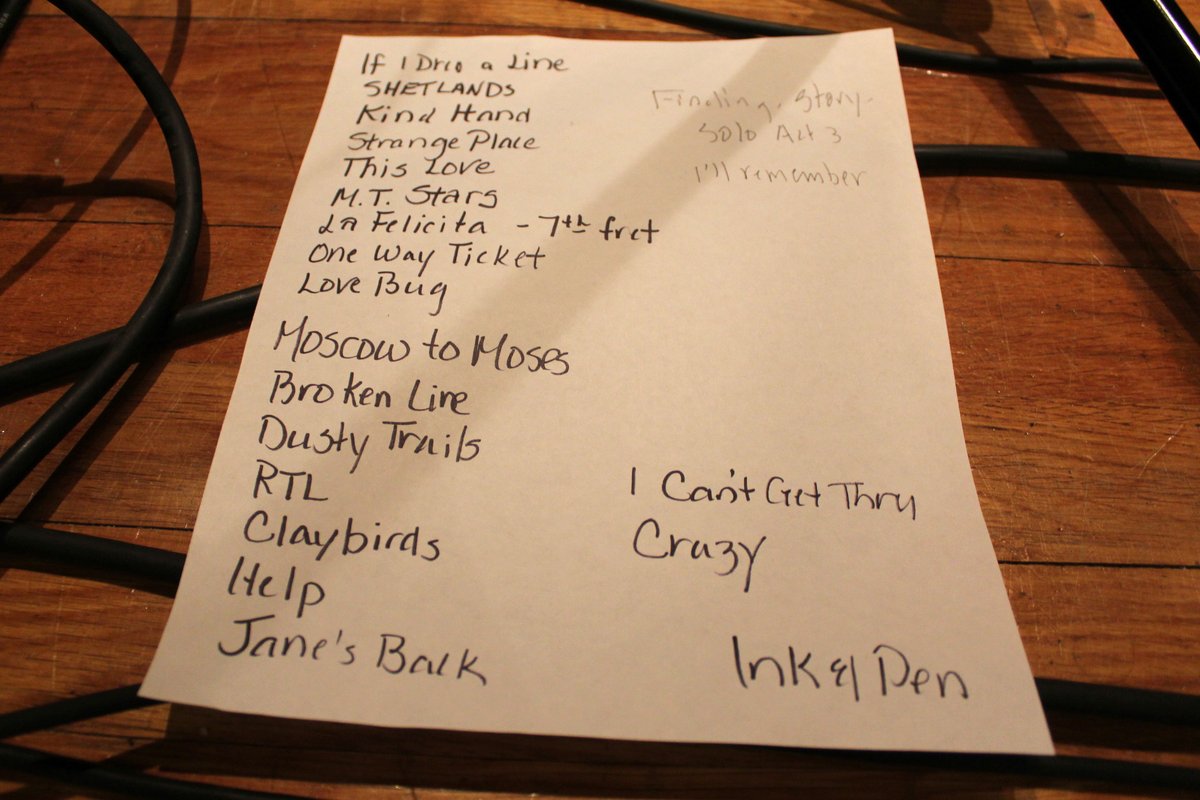 If I Drop a Line
SHETLANDS
Kind Hand
Strange Place
This Love
M.T. Stars
La Felicita - 7th fret
One Way Ticket
Love Bug
Moscow to Moses
Broken Line
Dusty Trails
RTL
Claybirds
Help
Jane's Back
Finding Story
Solo Act 3
I'll remember
I Can't Get Thru
Crazy
Ink & Pen